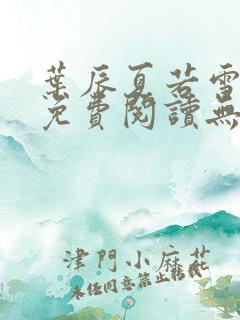 葉辰夏若雪
免費閱讀無
津門小麻花
未經同意禁止轉載